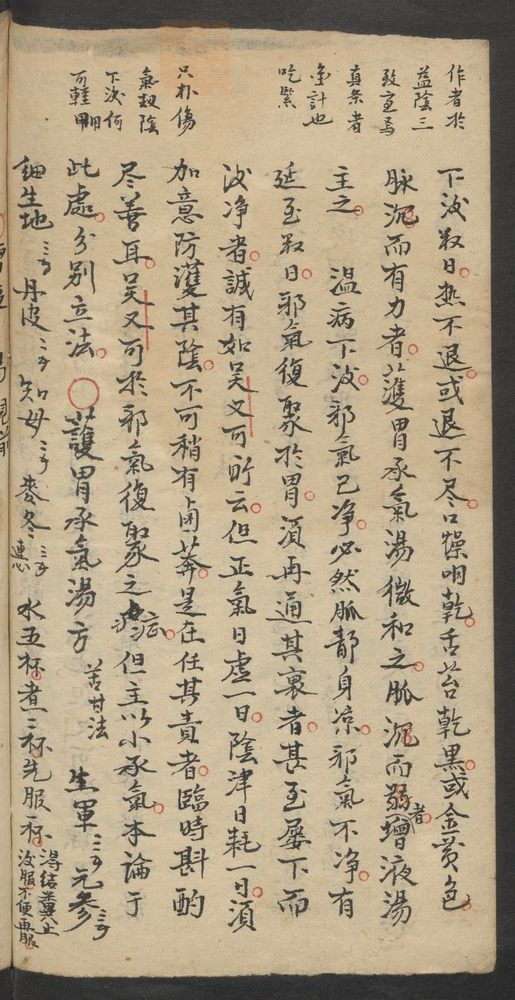 作者於
益陰三
致意焉
真柰者
室計也
吃緊
只朴傷
氣劫陰
下次何
可輕用
下後数日。热不退。或退不尽。口燥咽乾。舌苔乾黑。或金黄色。
脉沉而有力者。護胃承氣湯微和之。脉沉而弱者。增液湯
主之。 温病下後。邪氣已净。必然脈静身凉。邪氣不净。有
延至数日。邪氣復聚於胃。須再通其裏者。甚至屡下而
後净者。誠有如吴又可所云。但正氣日虚一日。陰津日耗一日。須
加意防護其陰。不可稍有鹵莽。是在任其責者。臨時斟酌
尽善耳。吴又可於邪氣復聚之症。但主以小承氣。本論于
此處。分别立法。 〇護胃承氣湯方 苦甘法 生軍三錢 元参三錢
細生地三錢 丹皮三錢 知母三錢 麥冬三錢連心 水五杯煮二杯先服一杯 得结糞止
後服不便再服